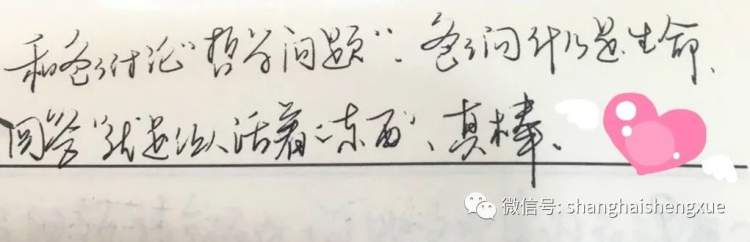 和爸爸讨论“哲学问题”：爸爸问什么是生命、
回答“就是让人活着的东西”、真棒、
微信号: shanghaishengxue